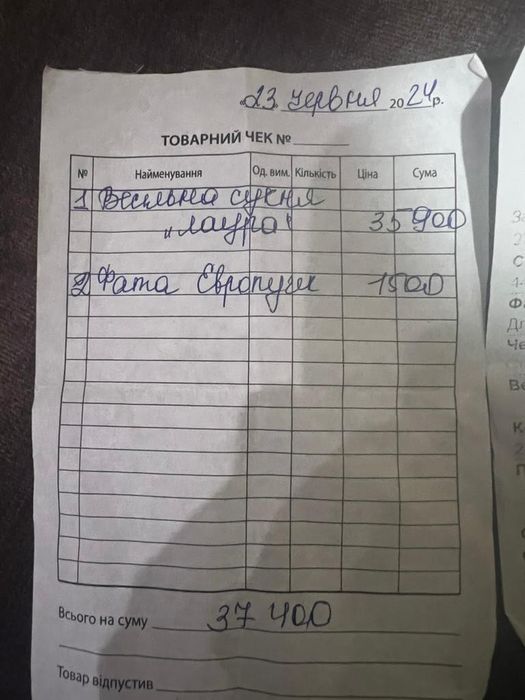 23 червня 2024 р.
ТОВАРНИЙ ЧЕК №
№ Найменування Од. вим. Кількість Ціна Сума
1 Весільна сукня
„Лаура“ 35 900
2 Фата Європучек 1500
Всього на суму 37 400
Товар відпустив